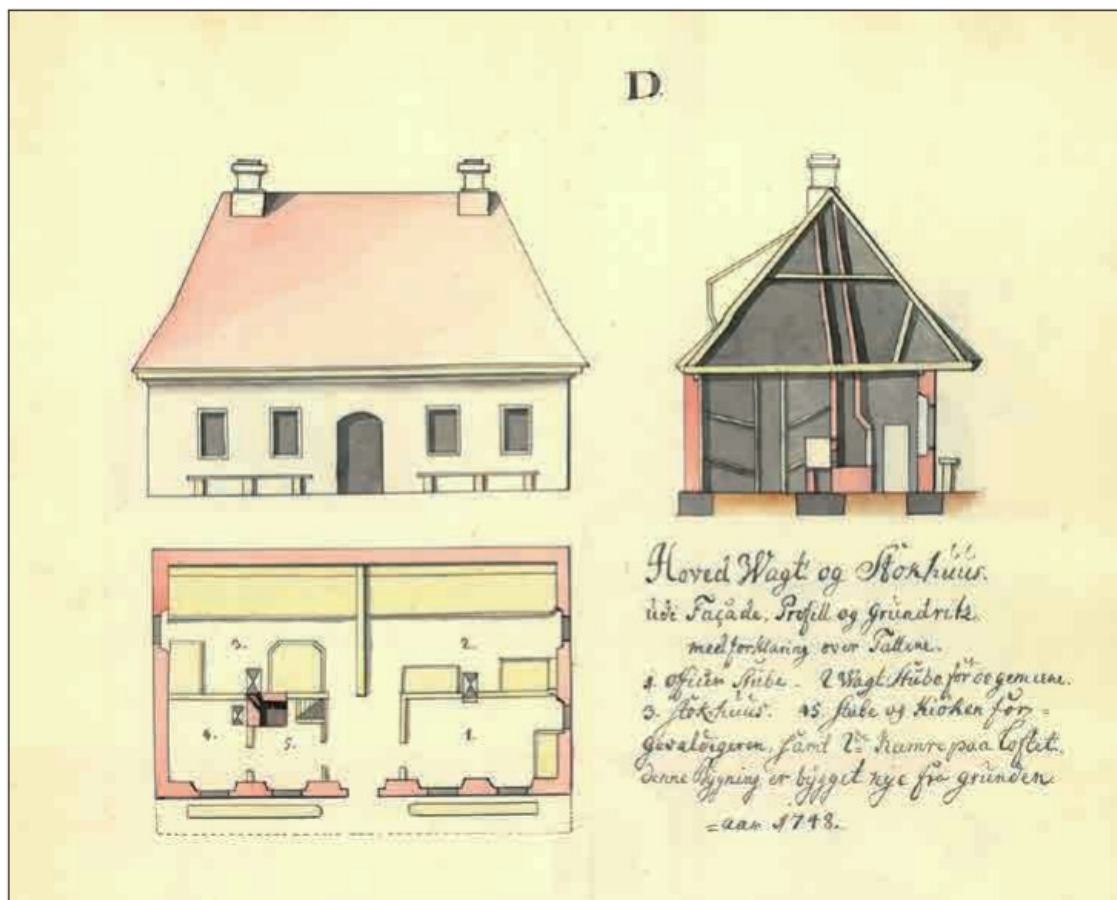 D.
Hoved Wagt og Stokhüüs.
üdi Façade, Profill og Gründritz
med forklaring over Tallene.
1. Officier Stübe. 2 Wagt Stübe för de gemeene.
3. Stokhüüs. 45. Stübe og Kiöken för=
gevaldigeren, samt 2de Kamre paa Loftet.
denne Bygning er bÿgget nye fra gründen
=aar 1748.
3.
2.
4.
5.
1.